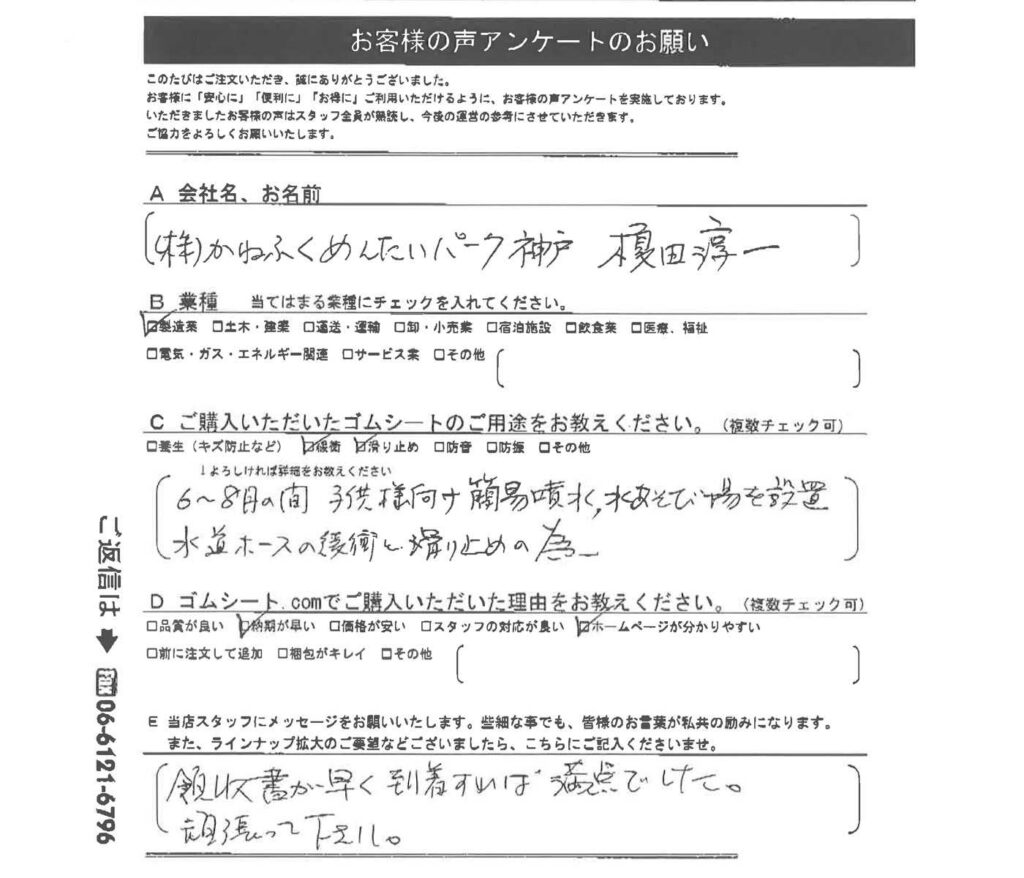 お客様の声アンケートのお願い
このたびはご注文いただき、誠にありがとうございました。
お客様に「安心に」「便利に」「お得に」ご利用いただけるように、お客様の声アンケートを実施しております。
いただきましたお客様の声はスタッフ全員が熟読し、今後の運営の参考にさせていただきます。
ご協力をよろしくお願いいたします。
A 会社名、お名前
(株)かねふくめんたいパーク神戸 榎田淳一
B 業種 当てはまる業種にチェックを入れてください。
☑製造業 □土木・建築 □運送・運輸 □卸・小売業 □宿泊施設 □飲食業 □医療、福祉
□電気・ガス・エネルギー関連 □サービス業 □その他
C ご購入いただいたゴムシートのご用途をお教えください。(複数チェック可)
□養生(キズ防止など) ☑緩衝 ☑滑り止め □防音 □防振 □その他
↓よろしければ詳細をお教えください
6～8月の間 子供様向け簡易噴水,水あそび場を設置
水道ホースの緩衝と滑り止めの為
D ゴムシート.comでご購入いただいた理由をお教えください。(複数チェック可)
□品質が良い ☑納期が早い □価格が安い □スタッフの対応が良い ☑ホームページが分かりやすい
□前に注文して追加 □梱包がキレイ □その他
E 当店スタッフにメッセージをお願いいたします。些細な事でも、皆様のお言葉が私共の励みになります。
また、ラインナップ拡大のご要望などございましたら、こちらにご記入くださいませ。
領収書が早く到着すれば満点でした。
頑張って下さい。
ご返信は➡FAX06-6121-6796